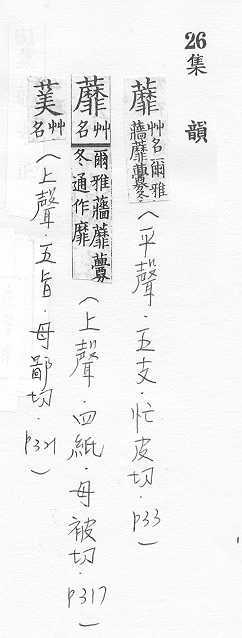 26 集韻
蘼艸名爾雅蘠蘼虋冬（平聲．五支．忙皮切．P33）
蘼艸名爾雅蘠蘼虋冬通作靡（上聲．四紙．母被切．P317）
葟艸名（上聲．五旨．母鄙切．P321）